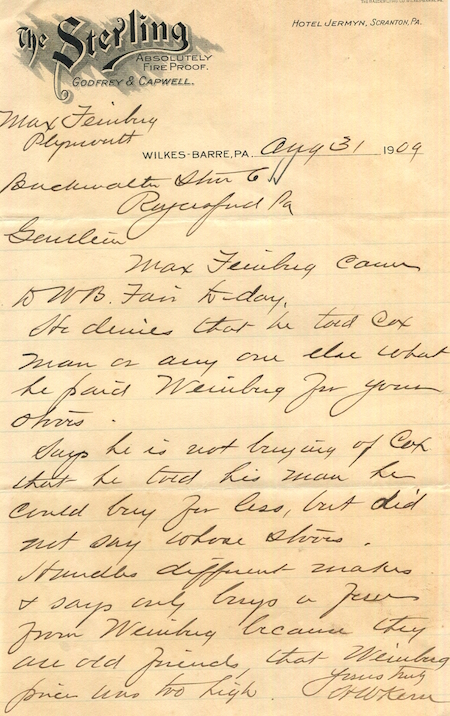 The Sterling
ABSOLUTELY
FIRE PROOF.
GODFREY & CAPWELL.
HOTEL JERMYN, SCRANTON, PA.
Max Feinberg
Plymouth
WILKES-BARRE, PA. Aug 31 1909
Buckwalter Stove Co
Royersford Pa
Gentlemen
Max Feinberg came
to W B. Fair to-day.
He denies that he told Cox
man or any one else what
he paid Weinberg for your
stoves.
Says he is not buying of Cox
that he told his man he
could buy for less, but did
not say whose stoves.
Handles different makes
& says only buys a few
from Weinberg because they
are old friends, that Weinberg
price was too high.
Yours truly
Kern